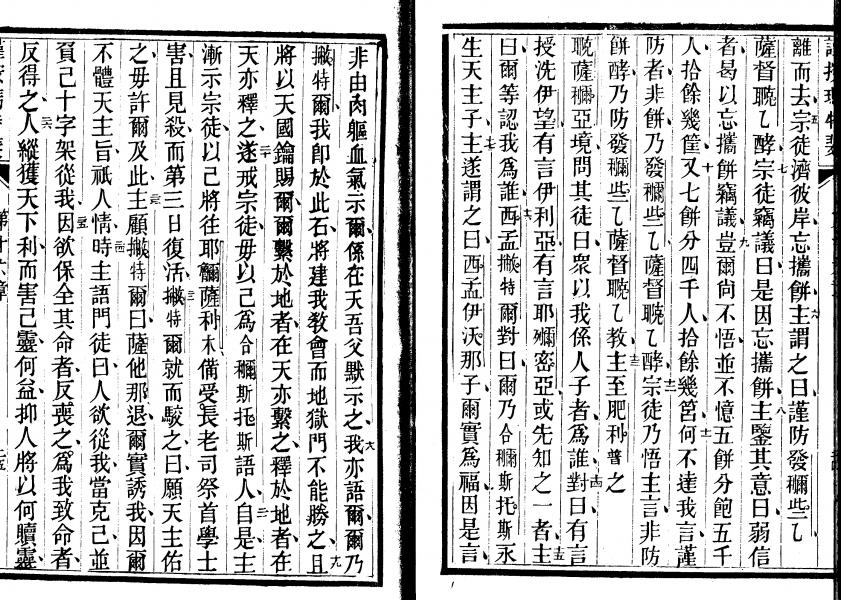 離而去宗徒濟彼岸忘攜餅主謂之曰謹防發穪些乚
薩督聴乚酵宗徒竊議曰是因忘攜餅主鑒其意曰弱信
者曷以忘攜餅竊議豈爾尙不悟並不憶五餅分飽五千
人拾餘幾筐又七餅分四千人拾餘幾筥何不達我言謹
防者非餅乃發穪些乚薩督聴乚酵宗徒乃悟主言非防
餅酵乃防發穪些乚薩督聴乚教主至肥利普之
聴薩穪亞境問其徒曰衆以我係人子者爲誰對曰有言
授洗伊望有言伊利亞有言耶穪密亞或先知之一者主
曰爾等認我爲誰西孟撇特爾對曰爾乃合穪斯托斯永
生天主子主遂謂之曰西孟伊沃那子爾實爲福因是言
非由肉軀血氣示爾係在天吾父默示之我亦語爾爾乃
撇特爾我卽於此石將建我敎會而地獄門不能勝之且
將以天國鑰賜爾爾繫於地者在天亦繫之釋於地者在
天亦釋之遂戒宗徒毋以己爲合穪斯托斯語人自是主
漸示宗徒以己將往耶穪薩利木備受長老司祭首學士
害且見殺而第三日復活撇特爾就而駮之曰願天主佑
之毋許爾及此主顧撇特爾曰薩他那退爾實誘我因爾
不體天主旨祇人情時主語門徒曰人欲從我當克己並
負己十字架從我因欲保全其命者反喪之爲我致命者
反得之人縱獲天下利而害己靈何益抑人將以何贖靈